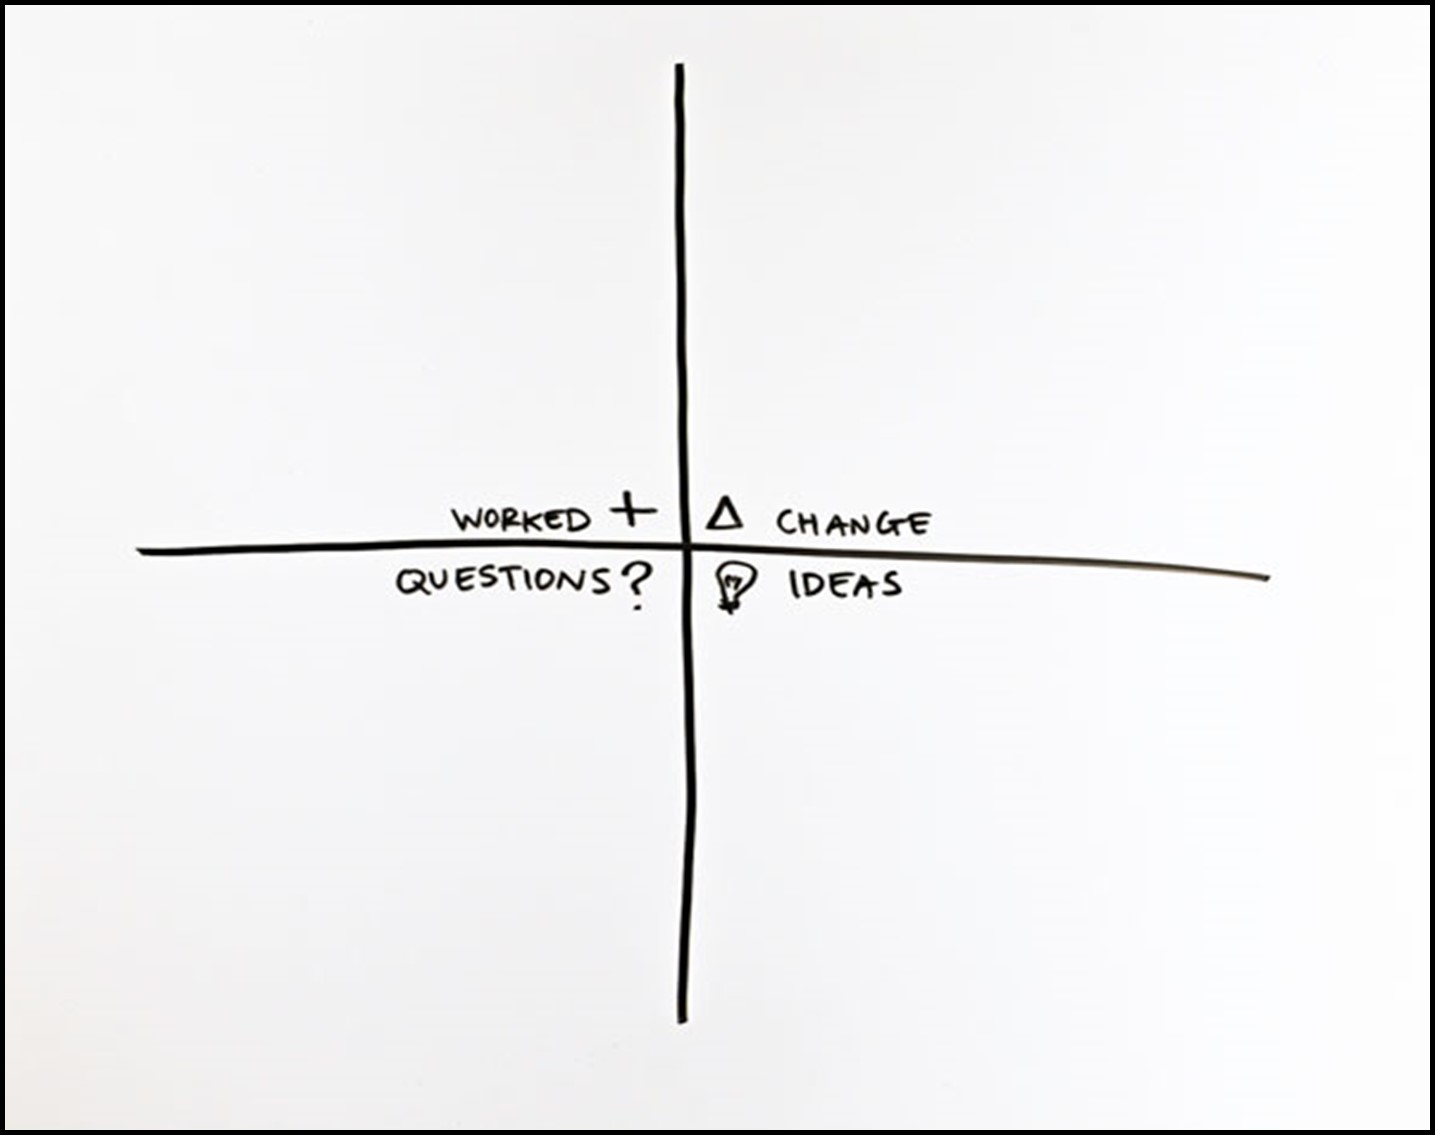 WORKED + Δ CHANGE
QUESTIONS? IDEAS